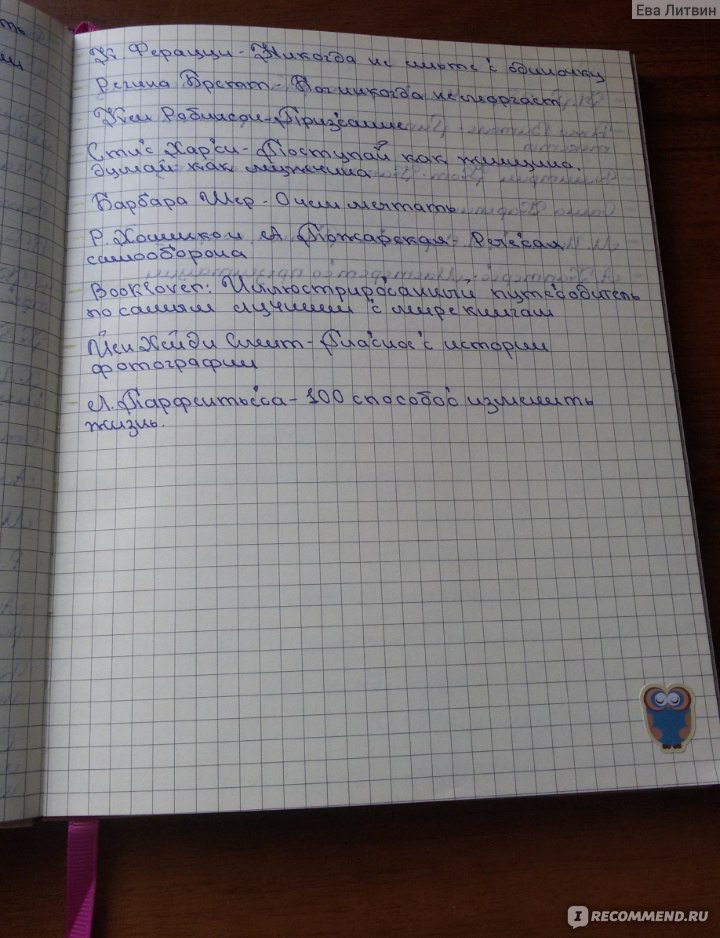 Ева Литвин
К Ферацци - Никогда не ешьте в одиночку
Регина Бретт - Бог никогда не моргает
Кен Робинсон - Призвание
Стив Харви - Поступай как женщина.
думай как мужчина
Барбара Шер - О чем мечтать
Р. Хошиком А. Пожарская - Речевая
самооборона
Booklover: Иллюстрированный путеводитель
по самым лучшим в мире книгам
Йен Хейди Смит - Главное в истории
фотографии
Л. Парфентьева - 100 способов изменить
жизнь.
IRECOMMEND.RU